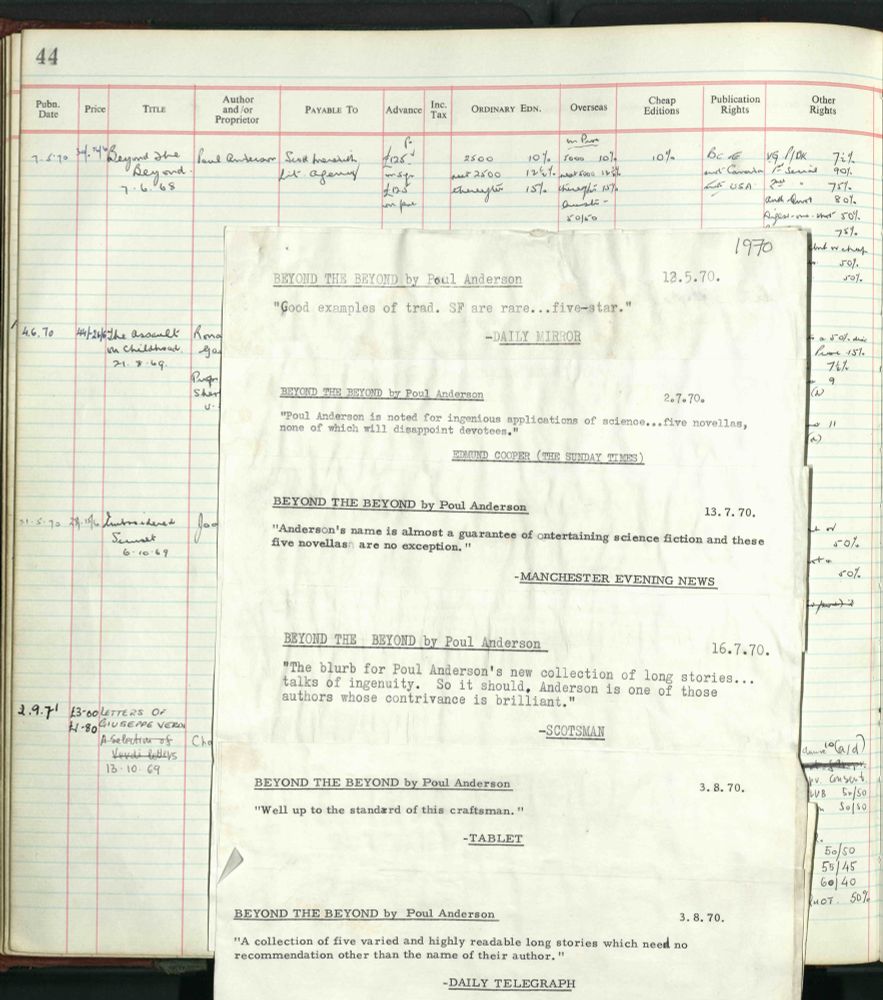 44
Pubn. Date
Price
TITLE
Author and/or Proprietor
PAYABLE TO
Advance
Inc. Tax
ORDINARY EDN.
Overseas
Cheap Editions
Publication Rights
Other Rights
7.5.70
Beyond the
Beyond
7.6.68
Poul Anderson
Scott Meredith
Lit. Agency
£125
£125
2500 10%
next 2500 12½%
thereafter 15%
5000 10%
thereafter 15%
50/50
10%
not Canada
USA
7½%
1st Serial 90%
2nd " 75%
80%
50%
75%
50%
50%
4.6.70
The Assault
on Childhood
21.8.69
Embroidered
Sunset
6.10.69
50%
50%
2.9.71
£3.00
£1.80
LETTERS OF
GIUSEPPE VERDI
A Selection of
Verdi letters
13.10.69
50/50
50/50
50/50
55/45
60/40
50%
1970
BEYOND THE BEYOND by Poul Anderson 12.5.70.
"Good examples of trad. SF are rare...five-star."
-DAILY MIRROR
BEYOND THE BEYOND by Poul Anderson 2.7.70.
"Poul Anderson is noted for ingenious applications of science...five novellas,
none of which will disappoint devotees."
EDMUND COOPER (THE SUNDAY TIMES)
BEYOND THE BEYOND by Poul Anderson 13.7.70.
"Anderson's name is almost a guarantee of entertaining science fiction and these
five novellas are no exception."
-MANCHESTER EVENING NEWS
BEYOND THE BEYOND by Poul Anderson 16.7.70.
"The blurb for Poul Anderson's new collection of long stories...
talks of ingenuity. So it should, Anderson is one of those
authors whose contrivance is brilliant."
-SCOTSMAN
BEYOND THE BEYOND by Poul Anderson 3.8.70.
"Well up to the standard of this craftsman."
-TABLET
BEYOND THE BEYOND by Poul Anderson 3.8.70.
"A collection of five varied and highly readable long stories which need no
recommendation other than the name of their author."
-DAILY TELEGRAPH